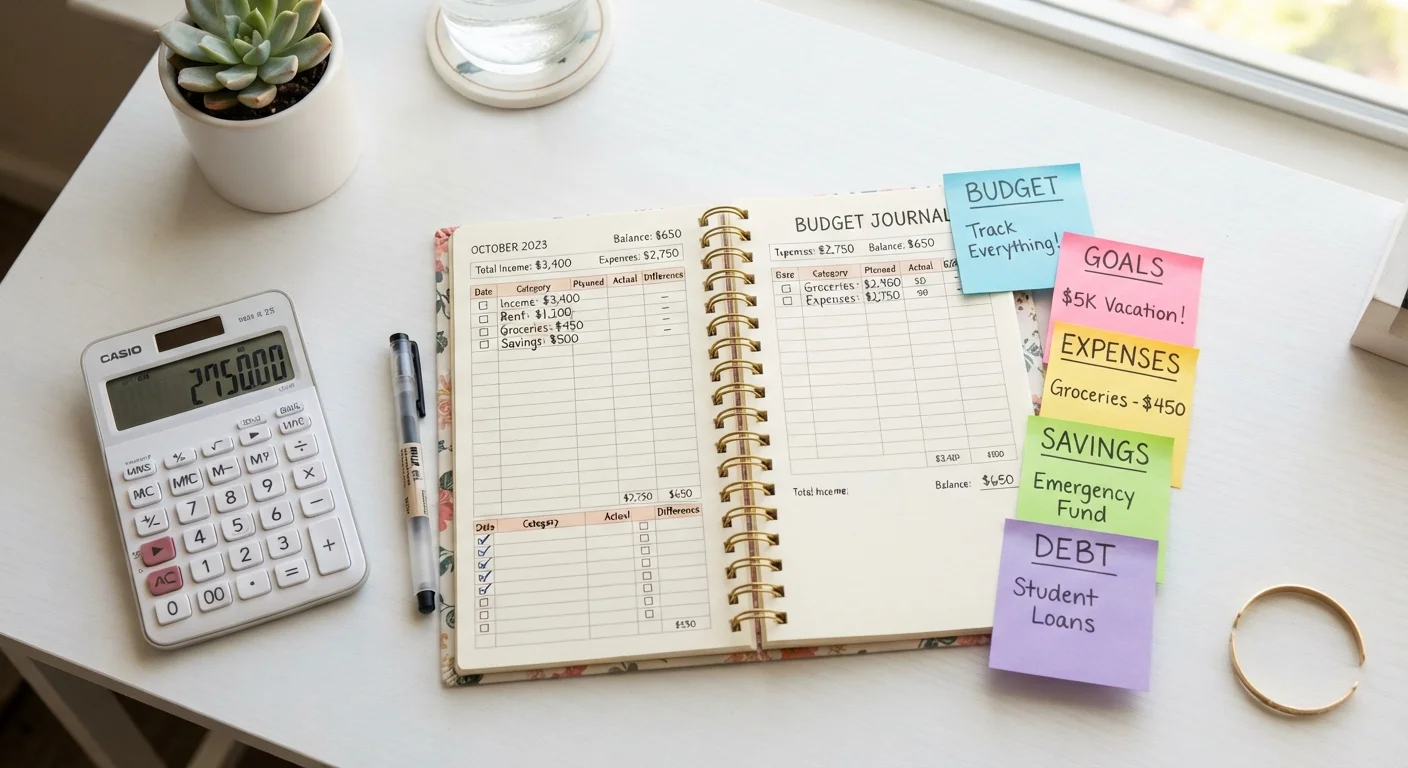 CASIO
2750.00
MC
7
8
9
×
−
4
5
6
+
1
2
3
AC
0
00
.
=
OCTOBER 2023
Balance: $650
Total Income: $3,400
Expenses: $2,750
Date Category Actual Difference
Income: $3,400
Groceries: $450
Savings: $500
$2,750 $650
Category Difference
BUDGET JOURNAL
$2,750 Balance: $650
Category Actual
Groceries: $2,460
Expenses:
Total Income:
Balance: $650
BUDGET
Track
Everything!
GOALS
$5K Vacation!
EXPENSES
Groceries - $450
SAVINGS
Emergency
Fund
DEBT
Student
Loans